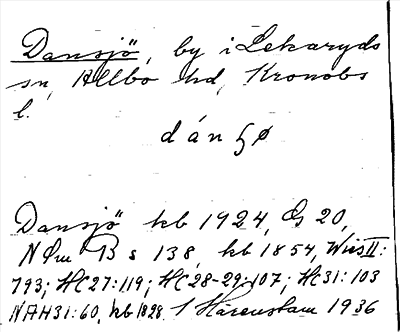 Dansjö, by i Lekaryds
sn, Allbo hd, Kronobs
l.
dánʃø
Dansjö kb 1924, G 20,
NOm B s 138, kb 1854, Wies II:
793; HC27:119; HC28-29:107; HC31:103
NAH31:60, kb 1898. I Härenstam 1936